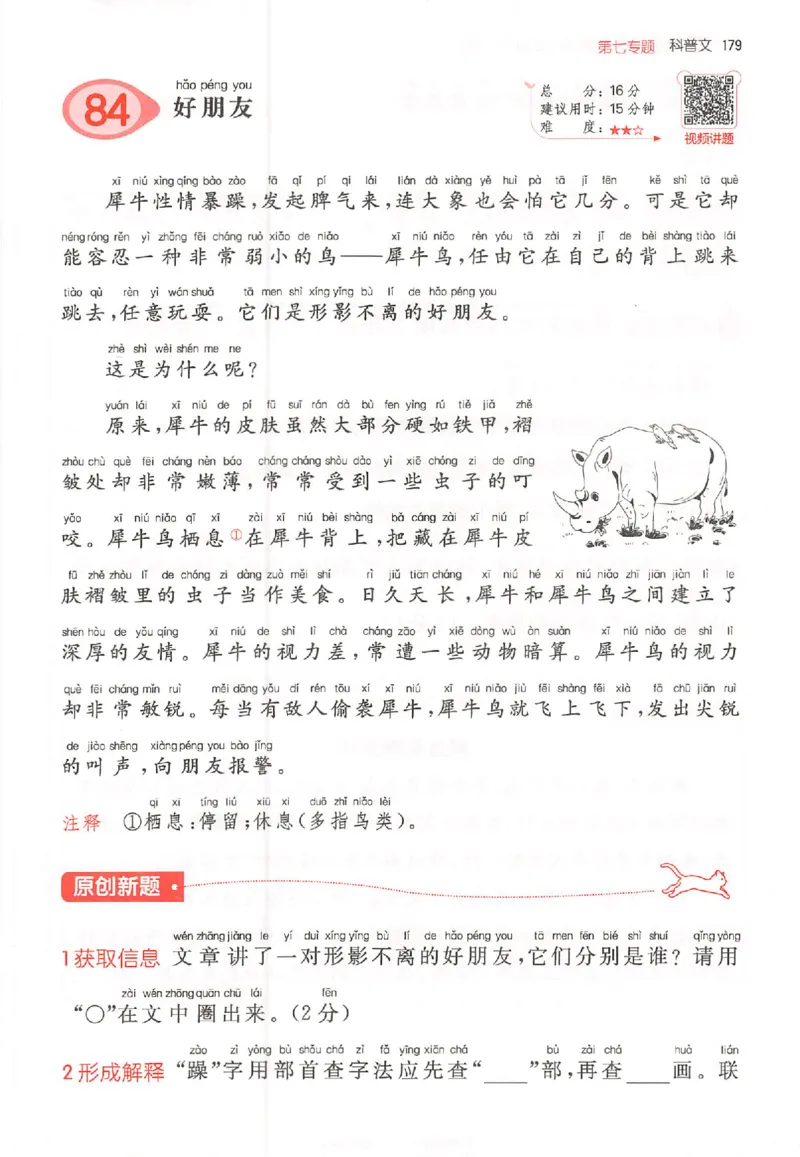 第七专题 科普文 179
84
hǎo péng you
好朋友
总 分：16分
建议用时：15分钟
难 度：★★☆
视频讲题
xī niú xìng qíng bào zào fā qǐ pí qi lái lián dà xiàng yě huì pà tā jǐ fēn kě shì tā què
犀牛性情暴躁，发起脾气来，连大象也会怕它几分。可是它却
néng róng rěn yì zhǒng fēi cháng ruò xiǎo de niǎo xī niú niǎo rèn yóu tā zài zì jǐ de bèi shàng tiào lái
能容忍一种非常弱小的鸟——犀牛鸟，任由它在自己的背上跳来
tiào qù rèn yì wán shuǎ tā men shì xíng yǐng bù lí de hǎo péng you
跳去，任意玩耍。它们是形影不离的好朋友。
zhè shì wèi shén me ne
这是为什么呢？
yuán lái xī niú de pí fū suī rán dà bù fen yìng rú tiě jiǎ zhě
原来，犀牛的皮肤虽然大部分硬如铁甲，褶
zhòu chù què fēi cháng nèn báo cháng cháng shòu dào yì xiē chóng zi de dīng
皱处却非常嫩薄，常常受到一些虫子的叮
yǎo xī niú niǎo qī xī zài xī niú bèi shàng bǎ cáng zài xī niú pí
咬。犀牛鸟栖息①在犀牛背上，把藏在犀牛皮
fū zhě zhòu lǐ de chóng zi dàng zuò měi shí rì jiǔ tiān cháng xī niú hé xī niú niǎo zhī jiān jiàn lì le
肤褶皱里的虫子当作美食。日久天长，犀牛和犀牛鸟之间建立了
shēn hòu de yǒu qíng xī niú de shì lì chà cháng zāo yì xiē dòng wù àn suàn xī niú niǎo de shì lì
深厚的友情。犀牛的视力差，常遭一些动物暗算。犀牛鸟的视力
què fēi cháng mǐn ruì měi dāng yǒu dí rén tōu xí xī niú xī niú niǎo jiù fēi shàng fēi xià fā chū jiān ruì
却非常敏锐。每当有敌人偷袭犀牛，犀牛鸟就飞上飞下，发出尖锐
de jiào shēng xiàng péng you bào jǐng
的叫声，向朋友报警。
qī xī tíng liú xiū xi duō zhǐ niǎo lèi
注释 ①栖息：停留；休息（多指鸟类）。
原创新题
wén zhāng jiǎng le yí duì xíng yǐng bù lí de hǎo péng you tā men fēn bié shì shuí qǐng yòng
1获取信息 文章讲了一对形影不离的好朋友，它们分别是谁？请用
zài wén zhōng quān chū lái fēn
“○”在文中圈出来。（2分）
zào zì yòng bù shǒu chá zì fǎ yīng xiān chá bù zài chá huà lián
2形成解释 “躁”字用部首查字法应先查“____”部，再查____画。联